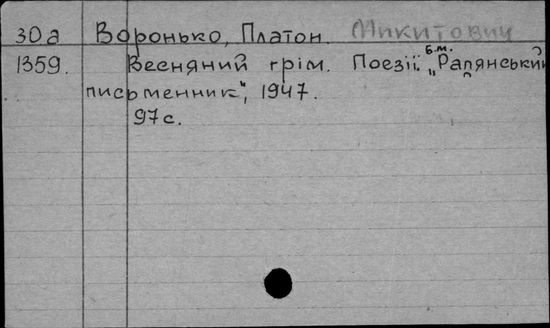 30а Воронько, Платон. Микитович
1359. Весняний грім. Поезії. Б.м. „Рапянський
письменник", 1947.
97с.